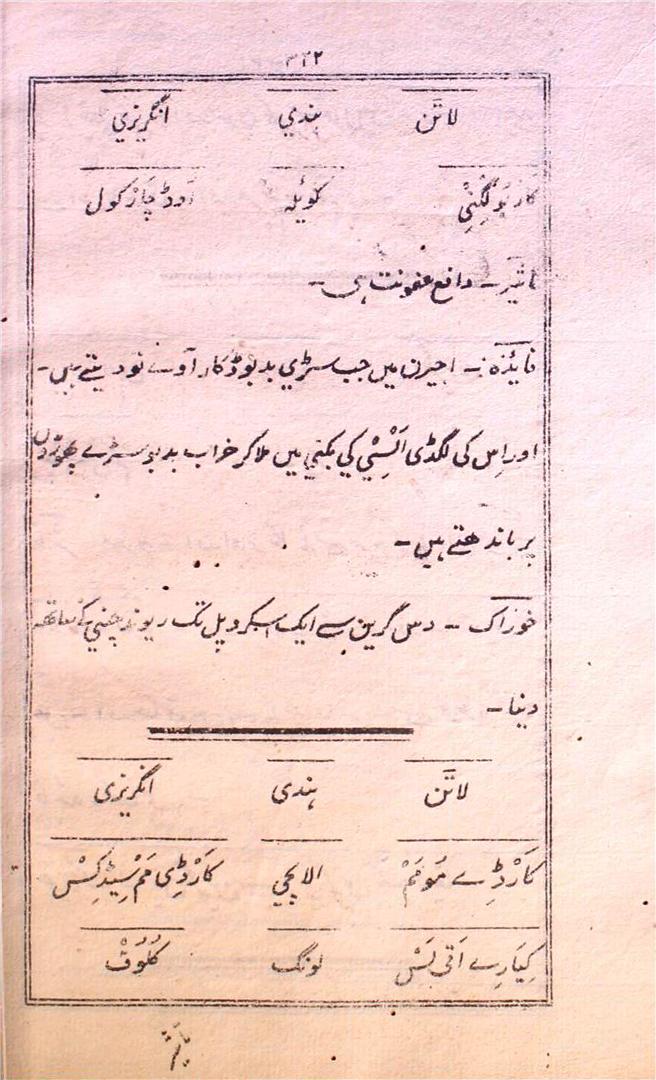 ۳۲۲
لاتن ہندي انگریزي
کاربولگنی کویلہ اوڈ چارکول
تاثیر۔ دافع عفونت ہی۔
فایدہ۔ اجیرن میں جب سڑي بدبو ڈکار آوے تو دیتے ہیں۔
اور اِس کی لگدی اَلسِی کي بکني میں ملاکر خراب بدبو سڑے پھوڑوں
پر باندھتے ہیں۔
خوراک۔ دس گرین سے ایک اسکروپل تک ریوندچینی کے ساتھ
دینا۔
لاتن ہندی انگریزی
کَارْڈِے مَومَمْ الایچی کَارْڈِی مَمْ سِیڈکِسْ
کِیَارِے اَفِی لَسْ لونگ کُلُوُفْ